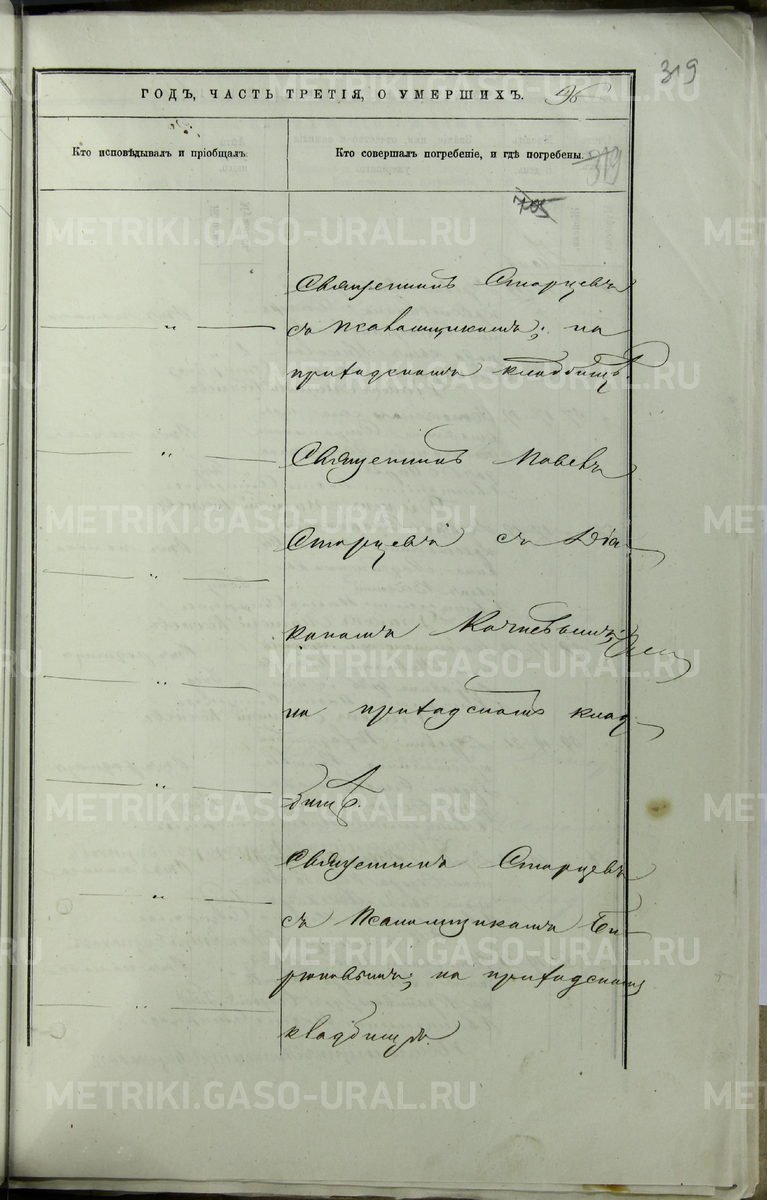 319
ГОДЪ, ЧАСТЬ ТРЕТІЯ, О УМЕРШИХЪ.
Кто исповѣдывалъ и пріобщалъ.
Кто совершалъ погребеніе, и гдѣ погребены.
319
705
Священникъ Старцевъ
съ Псаломщикомъ; на
приходскомъ кладбищѣ.
Священникъ
Старцевъ съ Діа-
кономъ
на приходскомъ клад-
бищѣ.
Священникъ Старцевъ
съ Псаломщикомъ Би-
рюковымъ; на приходскомъ
кладбищѣ.
METRIKI.GASO-URAL.RU